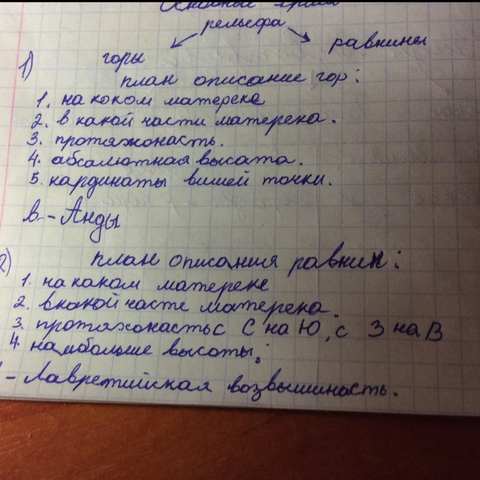 Основные формы
рельефа
горы равнины
1) план описание гор:
1. на коком матереке
2. в какой части матерека.
3. протяжонасть.
4. абсалютная высата.
5. кардинаты вишей точки.
в.-Анды
2) план описания равнин:
1. на каком матереке
2. вкакой части матерека.
3. протяжонасть с С на Ю, с З на В
4. наибольшие высоты;
- Лавретийская возвышиность.